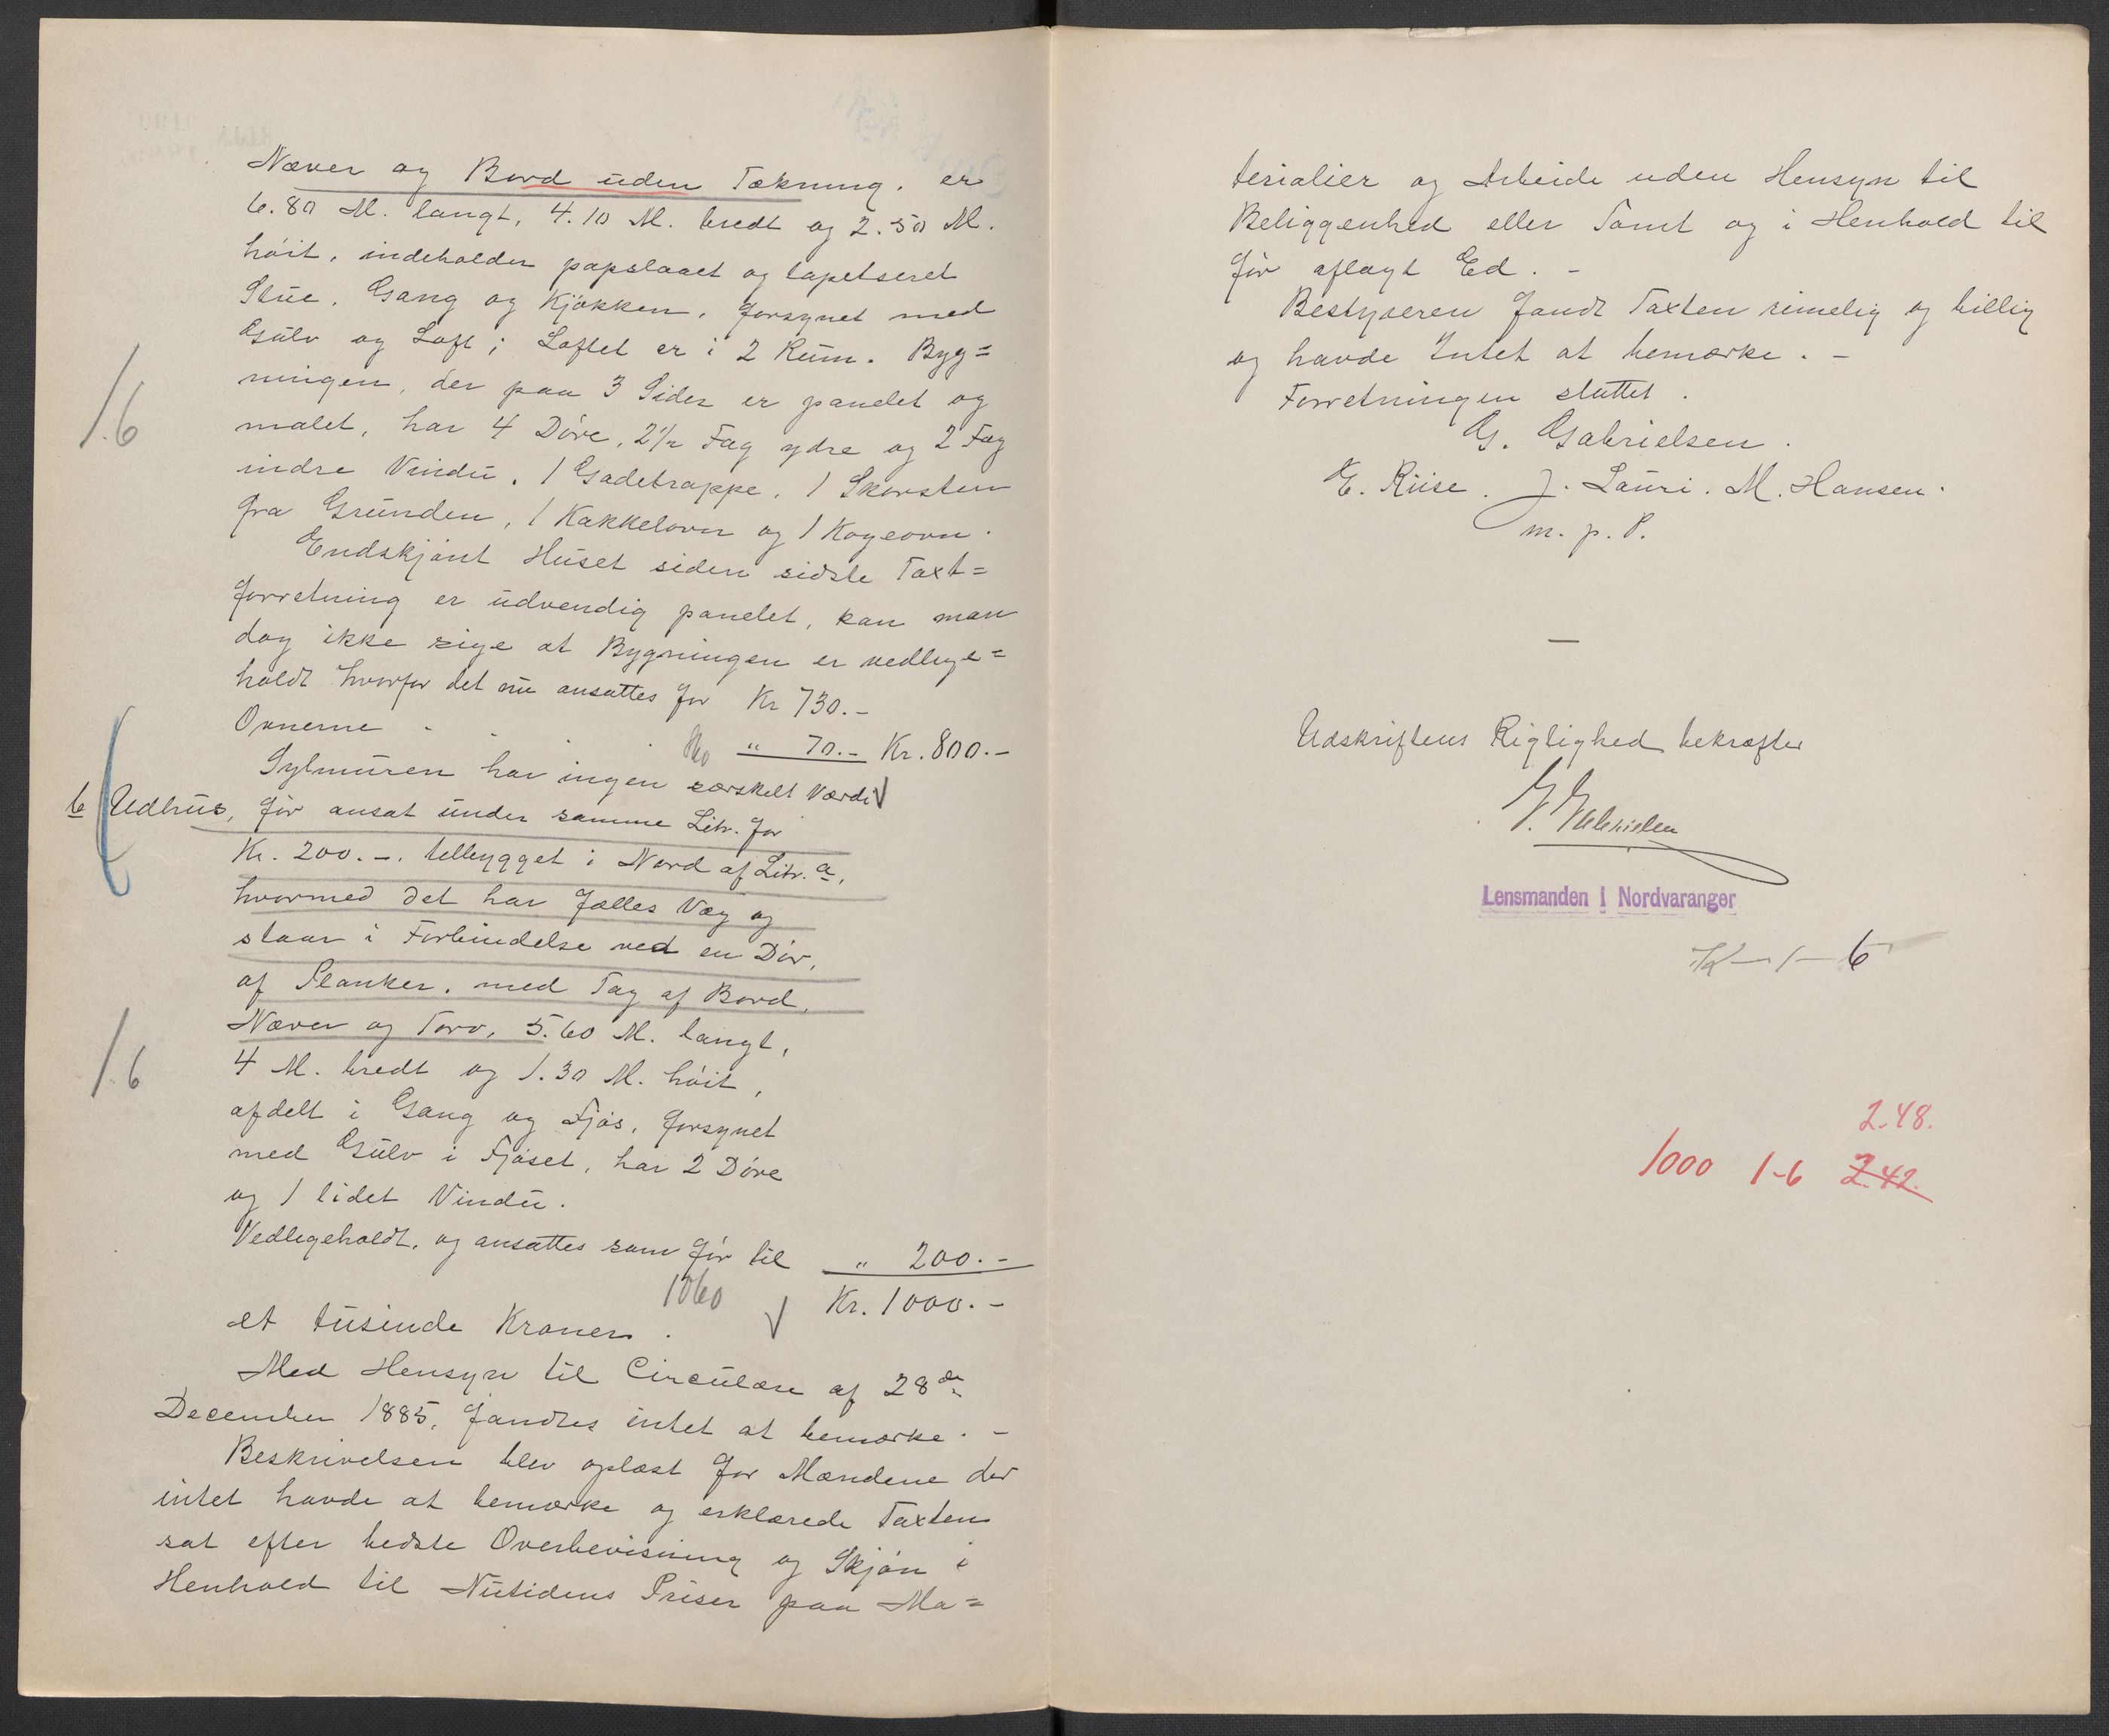 Næver og Bord uden Tækning. er
6.80 M. langt, 4.10 M. bredt og 2.50 M.
høit, indeholder papslaaet og tapetseret
Stue, Gang og Kjøkken, forsynet med
Gulv og Loft; Loftet er i 2 Rum. Byg=
ningen, der paa 3 Sider er panelet og
1.6
malet, har 4 Døre, 2 1/2 Fag ydre og 2 Fag
indre Vindu, 1 Gadetrappe, 1 Skorsten
fra Grunden, 1 Kakkelovn og 1 Kogeovn.
Endskjønt Huset siden sidste Taxt=
forretning er udvendig panelet, kan man
dog ikke sige at Bygningen er vedlige=
holdt hvorfor det nu ansattes for Kr 730.-
Ovnerne . . . . " 70.- Kr. 800.-
Sylmuren har ingen særskelt Værdi
b Udhus, før ansat under samme Litr. for
Kr. 200.-. tilbygget i Nord af Litr. a,
hvormed det har fælles Væg og
staar i Forbindelse ved en Dør,
af Planker, med Tag af Bord,
Næver og Torv, 5.60 M. langt,
1.6
4 M. bredt og 1.30 M. høit,
afdelt i Gang og Fjøs, forsynet
med Gulv i Fjøset, har 2 Døre
og 1 lidet Vindu.
Vedligeholdt, og ansattes som før til " 200.-
1060 Kr. 1000.-
et tusinde Kroner.
Med Hensyn til Circulære af 28de
December 1885, fandtes intet at bemærke. -
Beskrivelsen blev oplæst for Mændene der
intet havde at bemærke og erklærede Taxten
sat efter bedste Overbevisning og Skjøn i
Henhold til Nutidens Priser paa Ma=
terialier og Arbeide uden Hensyn til
Beliggenhed eller Tomt og i Henhold til
før aflagt Ed. -
Bestyreren fandt Taxten rimelig og billig
og havde Intet at bemærke. -
Forretningen sluttet.
G. Gabrielsen.
E. Riise. J. Lauri. M. Hansen.
m. p. P.
—
Udskriftens Rigtighed bekræfter
G. Gabrielsen
Lensmanden i Nordvaranger
K-1-6
2.48.
1000 1-6 2.42.